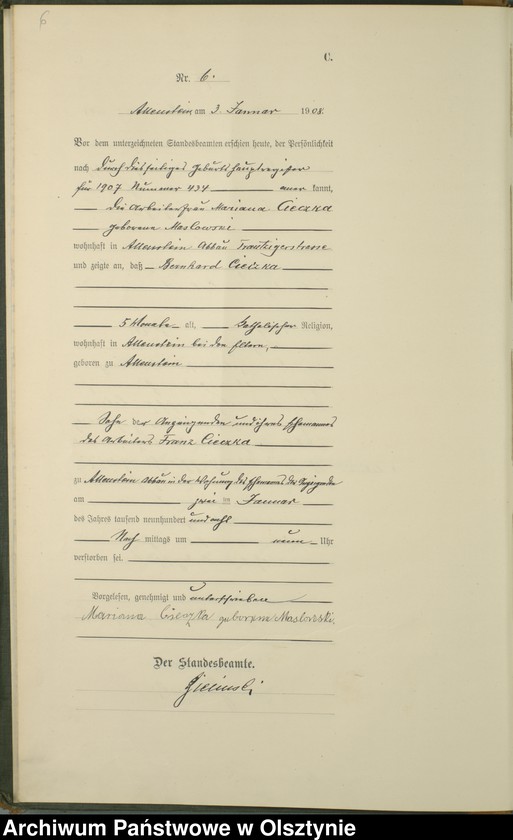 6
C.
Nr. 6.
Allenstein am 3. Januar 1908.
Vor dem unterzeichneten Standesbeamten erschien heute, der Persönlichkeit
nach durch diesseitiges Geburtshauptregister
für 1907 Nummer 434 anerkannt,
die Arbeiterfrau Mariana Cieczka
geborene Maslowski
wohnhaft in Allenstein Abbau Trautzigerstrasse
und zeigte an, daß Bernhard Cieczka
5 Monate alt, katholischer Religion,
wohnhaft in Allenstein bei den Eltern,
geboren zu Allenstein
Sohn der Anzeigenden und ihres Ehemannes
des Arbeiters Franz Cieczka
zu Allenstein Abbau in der Wohnung des Ehemannes der Anzeigenden
am zwei ten Januar
des Jahres tausend neunhundert und acht
Nach mittags um neun Uhr
verstorben sei.
Vorgelesen, genehmigt und unterschrieben
Mariana Cieczka geborene Maslowski.
Der Standesbeamte.
Zielinski
Archiwum Państwowe w Olsztynie